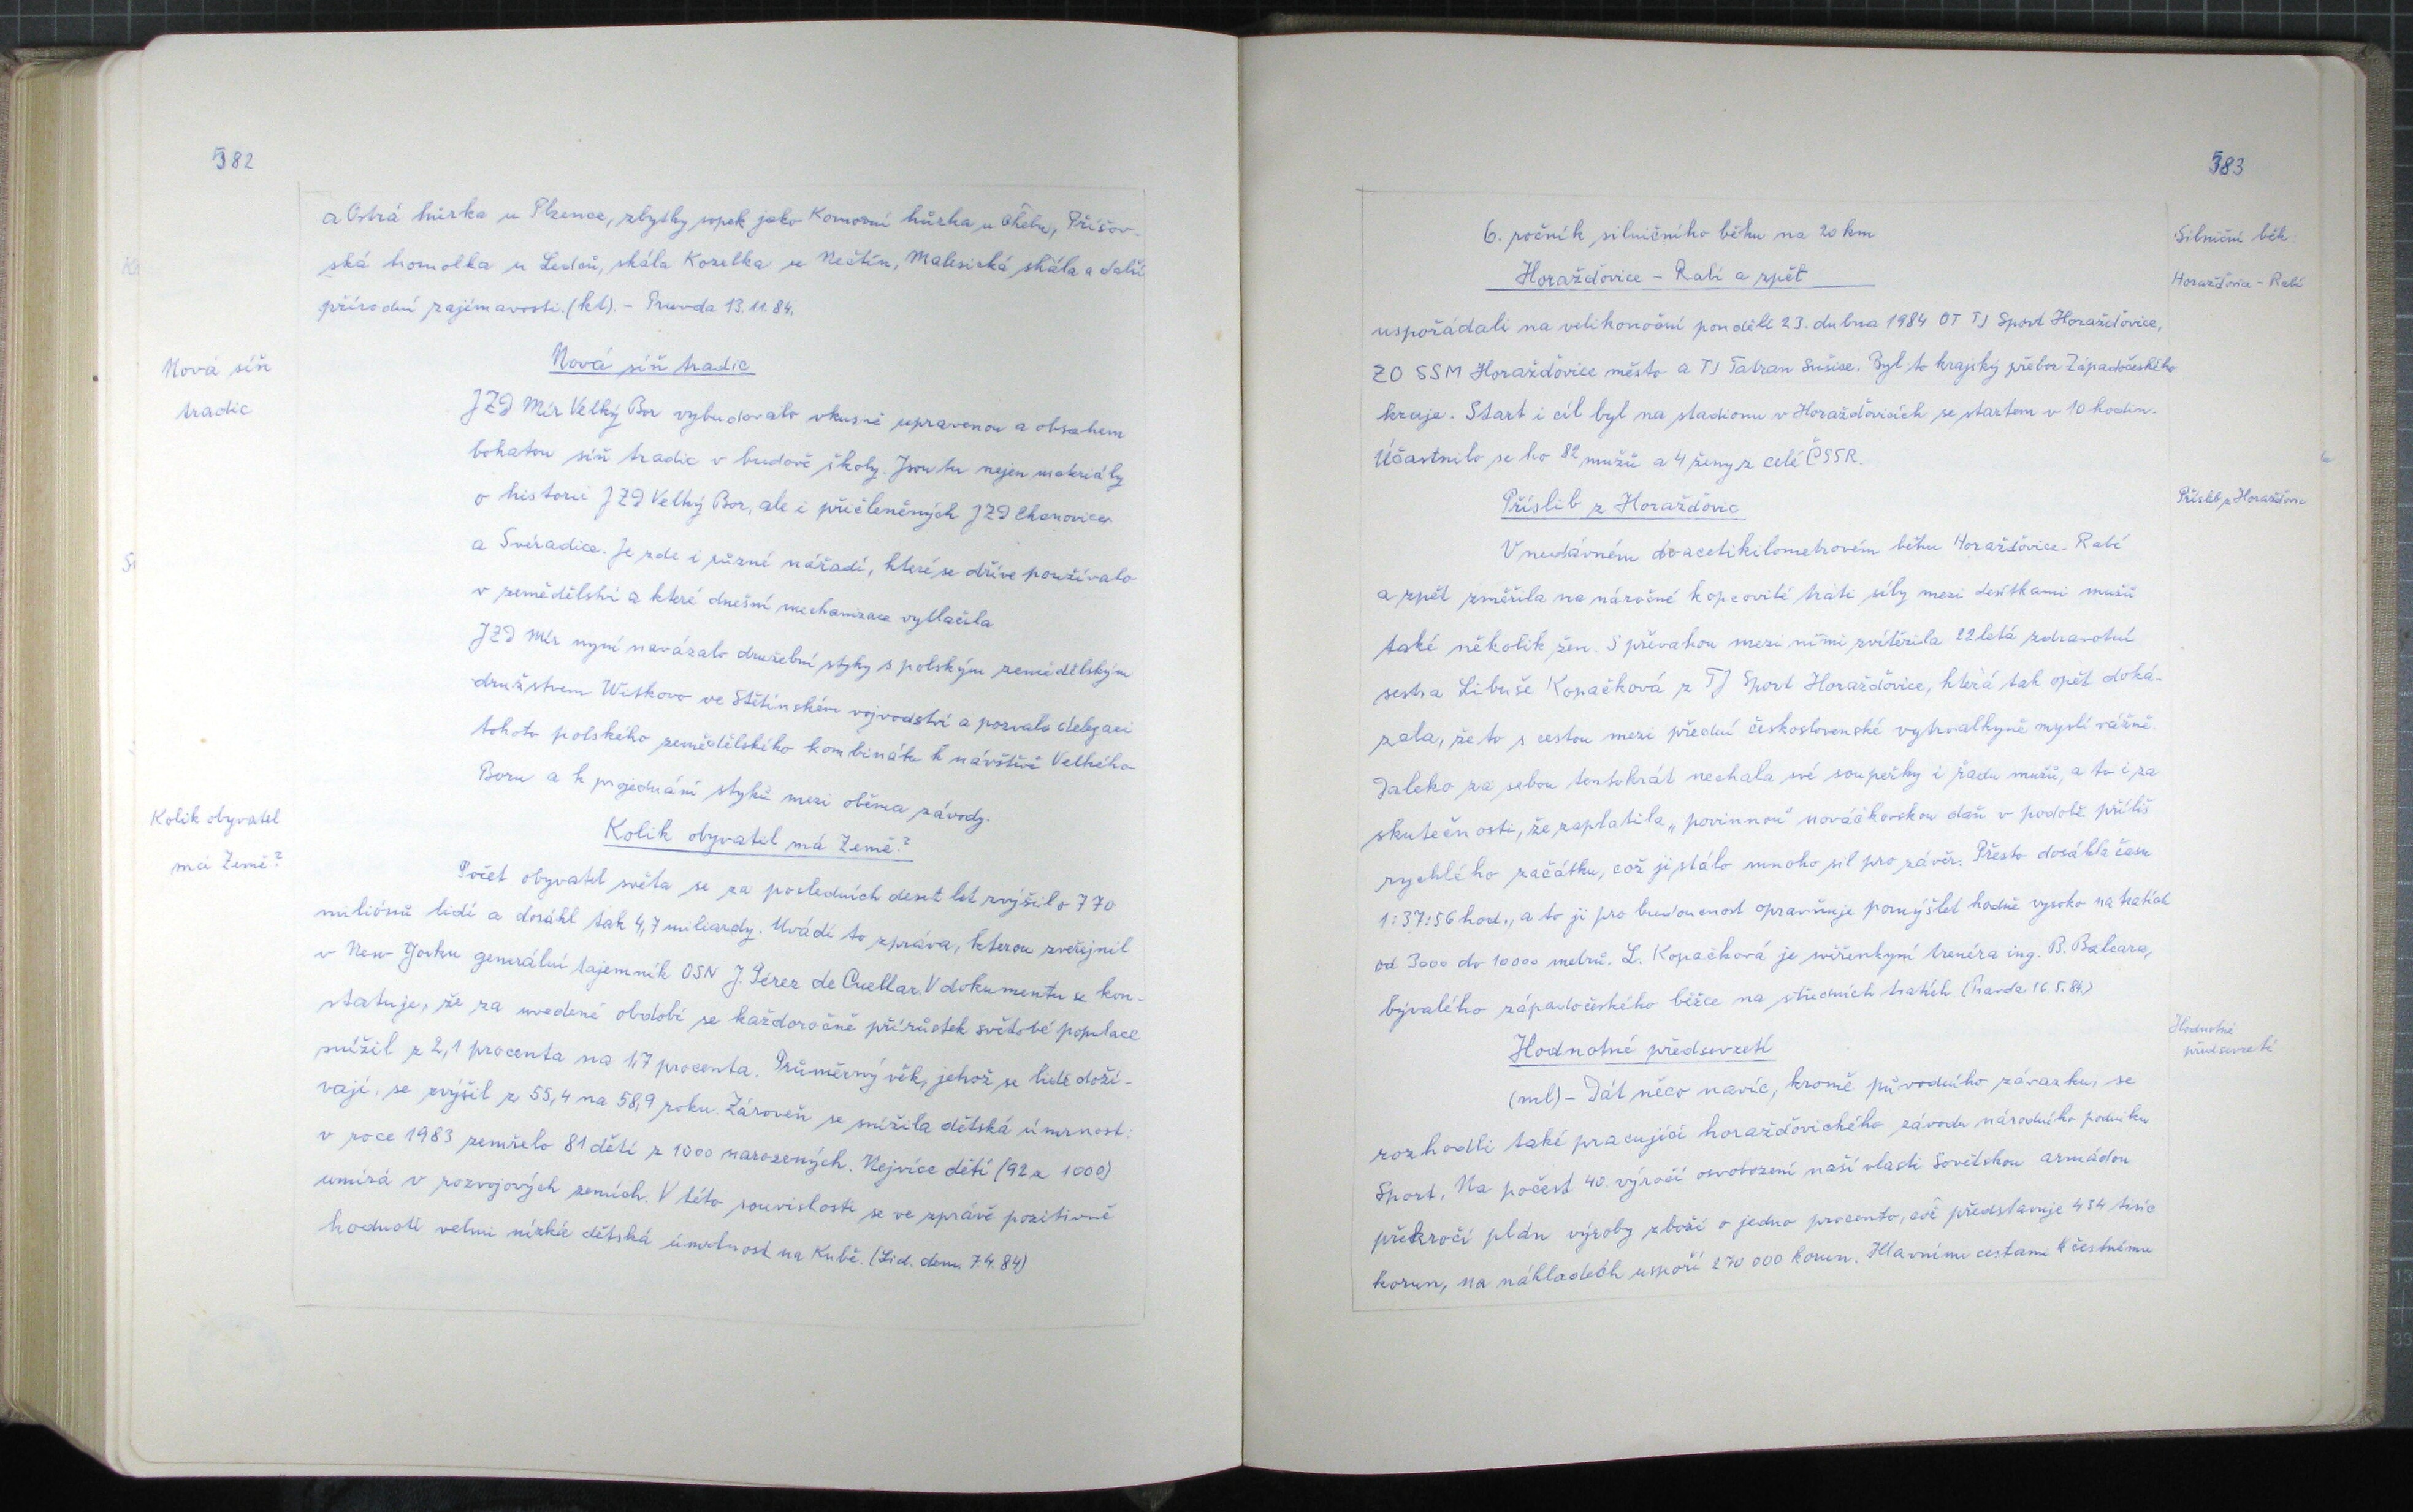 582
a Ostrá hůrka u Plzence, zbytky sopek jako Komorní hůrka u Chebu, Příšov-
ská homolka u Ledců, skála Kozelka u Nečtin, Malesická skála a další
přírodní zajímavosti. (kt). - Pravda 13.11.84.
Nová síň
tradic
Nová síň tradic
JZD Mír Velký Bor vybudovalo vkusně upravenou a obsahem
bohatou síň tradic v budově školy. Jsou tu nejen materiály
o historii JZD Velký Bor, ale i přičleněných JZD Chanovice
a Svéradice. Je zde i různé nářadí, které se dříve používalo
v zemědělství a které dnešní mechanizace vytlačila
JZD Mír nyní navázalo družební styky s polským zemědělským
družstvem Witkowo ve Štětínském vojvodství a pozvalo delegaci
tohoto polského zemědělského kombinátu k návštěvě Velkého
Boru a k projednání styků mezi oběma závody.
Kolik obyvatel
má Země?
Kolik obyvatel má Země?
Počet obyvatel světa se za posledních deset let zvýšil o 770
miliónů lidí a dosáhl tak 4,7 miliardy. Uvádí to zpráva, kterou zveřejnil
v New Yorku generální tajemník OSN J. Pérez de Cuellar. V dokumentu se kon-
statuje, že za uvedené období se každoročně přírůstek světové populace
snížil z 2,1 procenta na 1,7 procenta. Průměrný věk, jehož se lidé doží-
vají, se zvýšil z 55,4 na 58,9 roku. Zároveň se snížila dětská úmrnost:
v roce 1983 zemřelo 81 dětí z 1000 narozených. Nejvíce dětí (92 z 1000)
umírá v rozvojových zemích. V této souvislosti se ve zprávě pozitivně
hodnotí velmi nízká dětská úmrtnost na Kubě. (Lid. dem. 7.4.84)
583
6. ročník silničního běhu na 20 km
Horažďovice - Rabí a zpět
Silniční běh
Horažďovice - Rabí
uspořádali na velikonoční pondělí 23. dubna 1984 OT TJ Sport Horažďovice,
ZO SSM Horažďovice město a TJ Tatran Sušice. Byl to krajský přebor Západočeského
kraje. Start i cíl byl na stadionu v Horažďovicích se startem v 10 hodin.
Účastnilo se ho 82 mužů a 4 ženy z celé ČSSR.
Příslib z Horažďovic
Příslib z Horažďovic
V nedávném dvacetikilometrovém běhu Horažďovice - Rabí
a zpět změřila na náročné kopcovité trati síly mezi desítkami mužů
také několik žen. S převahou mezi nimi zvítězila 22letá zdravotní
sestra Libuše Kopačková z TJ Sport Horažďovice, která tak opět doká-
zala, že to s cestou mezi přední československé vytrvalkyně myslí vážně.
Daleko za sebou tentokrát nechala své soupeřky i řadu mužů, a to i za
skutečnosti, že zaplatila „povinnou" nováčkovskou daň v podobě příliš
rychlého začátku, což ji stálo mnoho sil pro závěr. Přesto dosáhla času
1:37:56 hod., a to ji pro budoucnost opravňuje pomýšlet hodně vysoko na tratích
od 3000 do 10000 metrů. L. Kopačková je svěřenkyní trenéra ing. B. Balcara,
bývalého západočeského běžce na středních tratích. (Pravda 16.5.84.)
Hodnotné předsevzetí
Hodnotné
předsevzetí
(ml) - Dát něco navíc, kromě původního závazku, se
rozhodli také pracující horažďovického závodu národního podniku
Sport. Na počest 40. výročí osvobození naší vlasti Sovětskou armádou
překročí plán výroby zboží o jedno procento, což představuje 434 tisíc
korun, na nákladech uspoří 270 000 korun. Hlavními cestami k čestnému